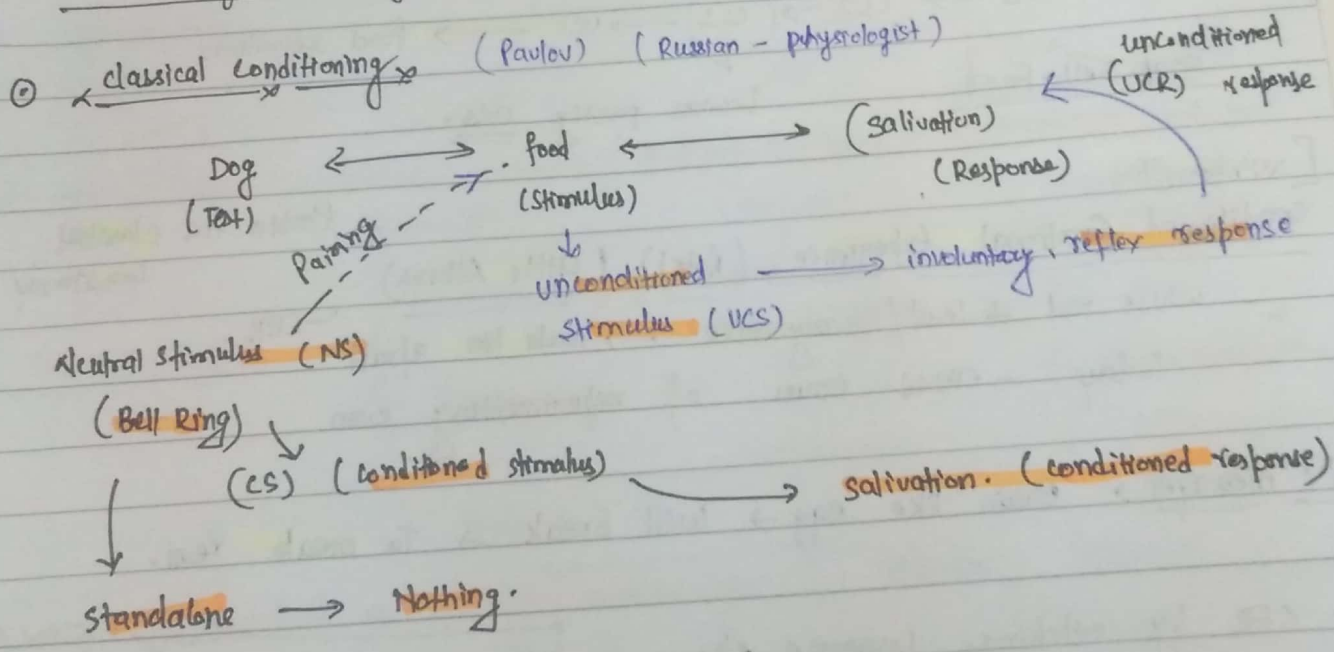 classical conditioning (Pavlov) (Russian - physiologist)
unconditioned
(UCR) response
Dog food (salivation)
(Test) (Stimulus) (Response)
Pairing
unconditioned involuntary, reflex response
stimulus (UCS)
Neutral stimulus (NS)
(Bell Ring)
(CS) (conditioned stimulus) salivation. (conditioned response)
standalone → Nothing.